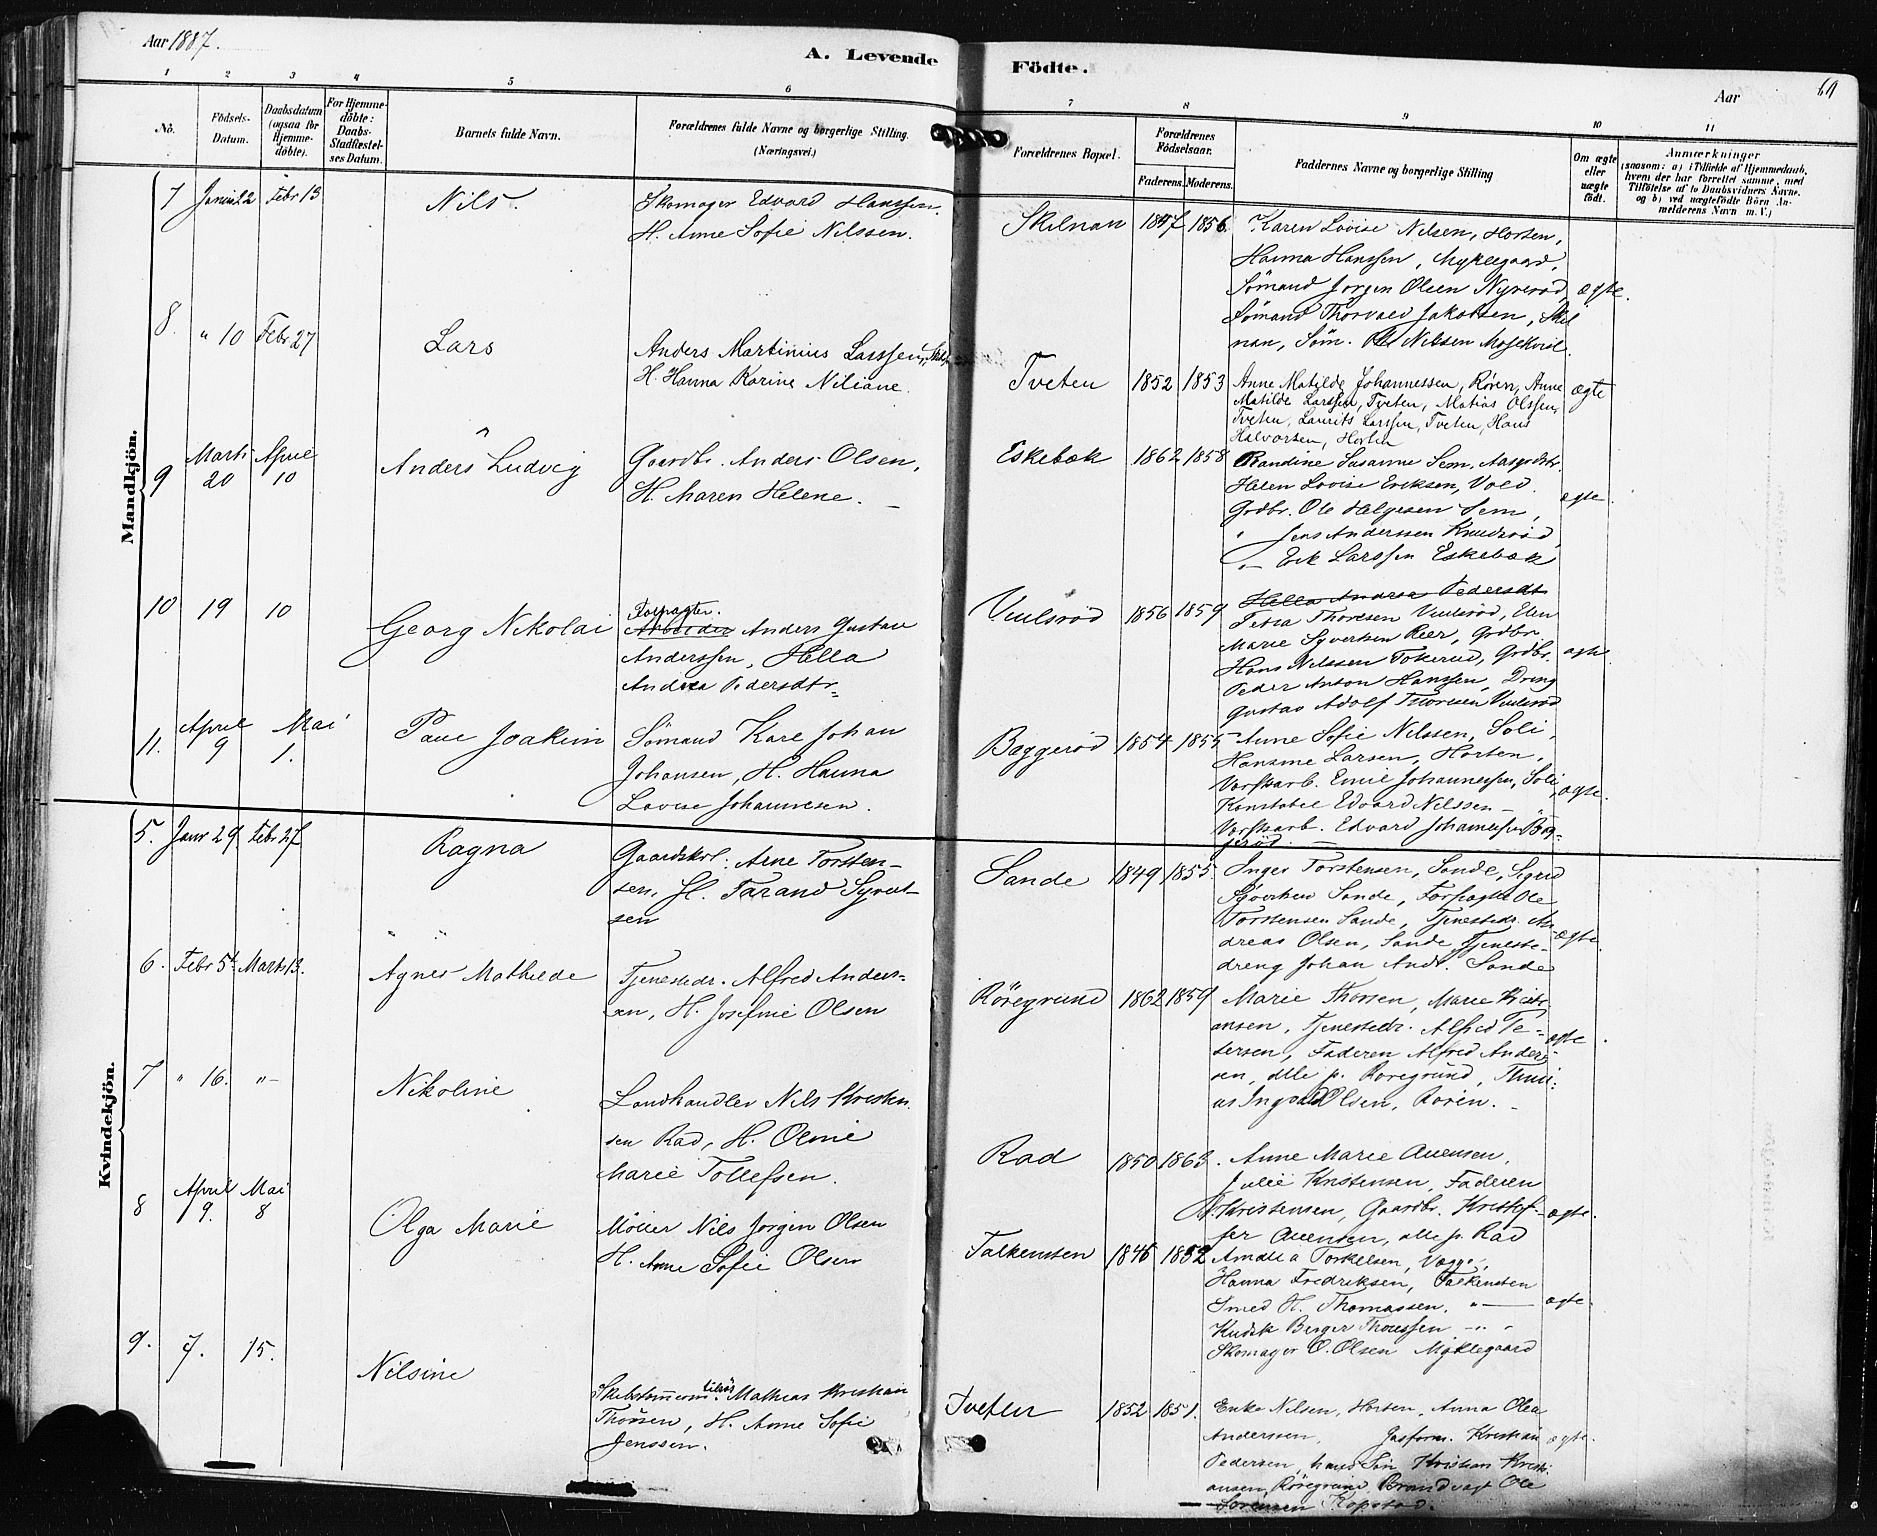 Aar 1887.
A. Levende Födte.
Aar
1 2 3 4 5 6 7 8 9 10 11
No.
Födsels-Datum.
Daabsdatum (ogsaa for Hjemme-døbte).
For Hjemme-döbte: Daabs-Stadfæstel-ses Datum.
Barnets fulde Navn.
Forældrenes fulde Navne og borgerlige Stilling. (Næringsvei.)
Forældrenes Bopæl.
Forældrenes Födselsaar.
Faderens. Moderens.
Faddernes Navne og borgerlige Stilling
Om ægte eller uægte födt.
Anmærkninger
(saasom: a) i Tilfælde af Hjemmedaab, hvem der har forrettet samme, med Tilföielse af to Daabsvidners Navne, og b) ved uægtefödte Börn An-melderens Navn m. V.)
Mandkjön.
7 Januar 12 Febr 13 Nils.
Skomager Edvard Hanssen.
H. Anne Sofie Nilssen.
Skilnan 1847 1856
Karen Lovise Nilsen, Horten,
Hanna Hanssen, Myklegaard,
Sømand Jørgen Olsen Nyrerød, ægte.
Sømand Thorvald Jakobsen, Skil
nan, Söm. Ole Nilsen
8. " 10 Febr 27 Lars
Anders Martinius Larssen,
H. Hanna Karine Niliane.
Tveten 1852 1853
Anne Matilde Johannessen, Røren, Anne
Matilde Larssen, Tveten, Matias Olssen,
Tveten, Laurits Larssen, Tveten, Hans
Halvorsen, Horten
ægte
9 Marts 20 April 10 Anders Ludvig
Gaardbr. Anders Olsen,
H. Maren Helene. –
Eskebæk 1862 1858
Randine Susanne Sem,
Helen Lovise Eriksen, Vold.
Grdbr. Ole Helgesen Sem,
" Jens Anderssen Knudsrød,
"– Erik Larssen Eskebæk
ægte
10 19 10 Georg Nikolai
Forpagter.
Arbeider Anders Gustav
Anderssen, Hella
Andrea Pedersdtr.
1856 1859
Hella Andrea Pedersdt
Petra Thoresen
Marie Syvertsen Reer, Grdbr.
Hans Nilssen Tokerud, Grdbr.
Peder Anton Hanssen, Dreng
Gustav Adolf Thoresen
ægte
11. April 9 Mai 1. Paul Joakim
Sømand Karl Johan
Johansen, H. Hanna
Lovise Johannesen.
Baggerød 1854 1855
Anne Sofie Nilssen, Soli,
Hansine Larsen, Horten,
Værftsarb. Emil Johannessen, Soli,
Konstabel Edvard Nilssen –
Værftsarb. Edvard Johannessen Bag-
gerød. –
ægte.
Kvindekjön.
5. Janr 29 Febr 27 Ragna
Gaardskrl. Arne Torsten-
sen, H. Tarand Syvert
sen
Sande 1849 1855
Inger Torstensen, Sande, Sigrid
Syvertsen Sande, Forpagter Ole
Torstensen Sande, Tjenestedr. An
dreas Olsen, Sande, Tjeneste-
dreng Johan Andr. Sande
ægte
6. Febr 5te Marts 13. Agnes Mathilde
Tjenestedr. Alfred Anders-
en, H. Josefine Olsen
Röregrund 1862 1859
Marie Thorsen, Marie Kristi
ansen, Tjenestedr. Alfred Pe-
tersen, Faderen Alfred Anders-
sen, alle p. Röregrund,
Olsen, Roren. –
ægte
7 " 16. "– Nikoline
Landhandler Nils Kristen
sen Rad, H. Oline
Marie Tollefsen.
Rad 1850 1863
Anne Marie Auensen,
Julie Kristensen, Faderen
N. Kristensen, Gaardbr. Kristof-
fer Auensen, alle p. Rad
ægte.
8 April 9. Mai 8 Olga Marie
Møller Nils Jörgen Olsen
H. Anne Sofie Olsen
Falkensten 1846 1852
Amalia Torkelsen,
Hanna Fredriksen, Falkensten
Smed H. Thomassen, "–
Kudsk Berger Thomessen –"–
Skomager O. Olsen Myklegaard
ægte
9. 7. 15. Nilsine
Skibstømmerm. Mathias Kristian
Thorsen, H. Anne Sofie
Jenssen.
Tveten 1852 1851.
Enke Nilsen, Horten, Anna Olea
Anderssen, Kristian
Pedersen, hans Søn Kristian Kristi-
ansen, Röregrund, Brandvagt Ole
Sørensen Kopstad.
ægte.